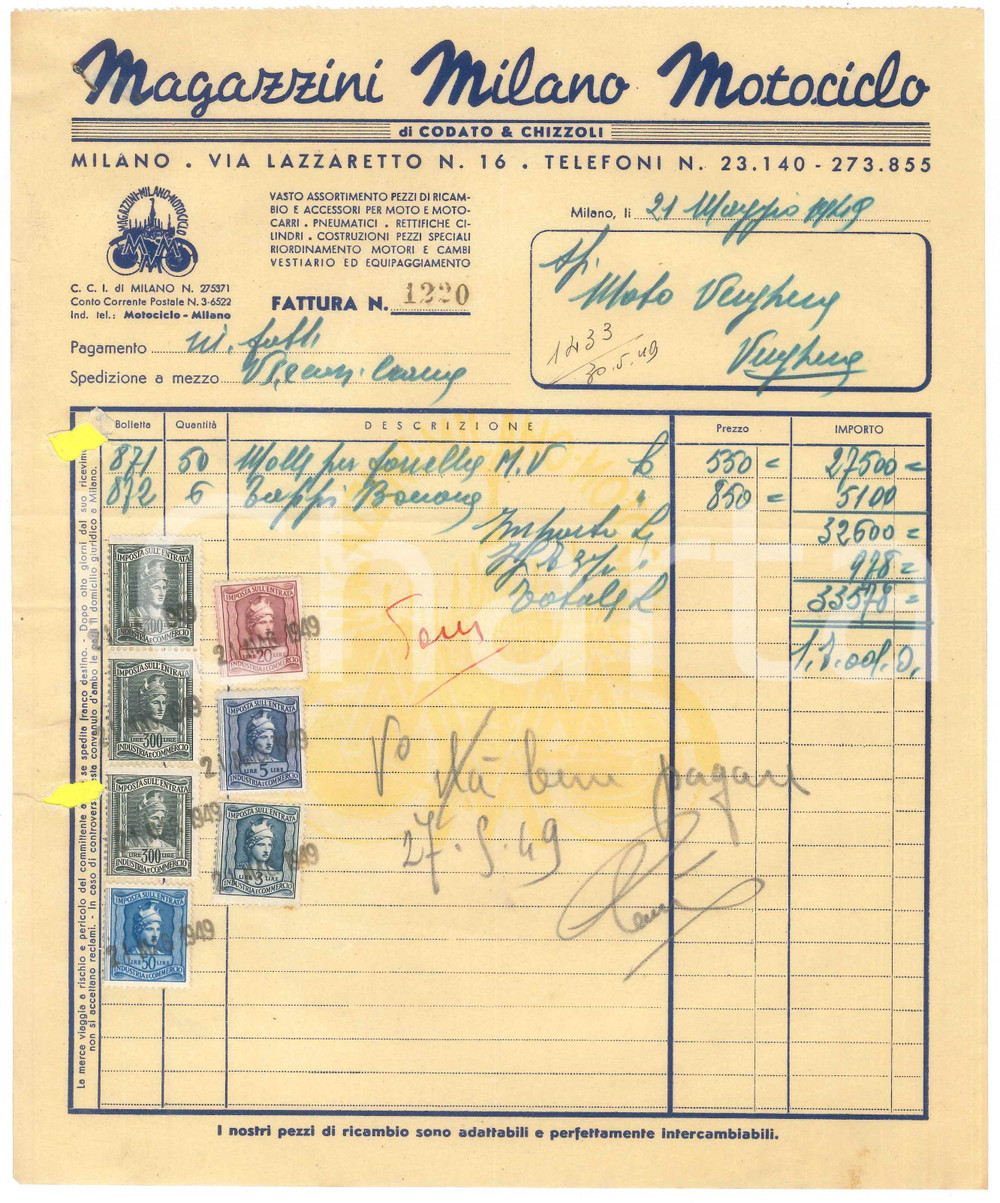 Magazzini Milano Motociclo
di CODATO & CHIZZOLI
MILANO . VIA LAZZARETTO N. 16 . TELEFONI N. 23.140 - 273.855
MAGAZZINI·MILANO·MOTOCICLO
VASTO ASSORTIMENTO PEZZI DI RICAM-
BIO E ACCESSORI PER MOTO E MOTO-
CARRI . PNEUMATICI . RETTIFICHE CI-
LINDRI . COSTRUZIONI PEZZI SPECIALI
RIORDINAMENTO MOTORI E CAMBI
VESTIARIO ED EQUIPAGGIAMENTO
Milano, li 21 Maggio 1949
C. C. I. di MILANO N. 275371
Conto Corrente Postale N. 3-6522
Ind. tel.: Motociclo - Milano
FATTURA N. 1220
Moto Verghera
Verghera
1433
30.5.49
Pagamento
Spedizione a mezzo
Bolletta Quantità DESCRIZIONE Prezzo IMPORTO
871 50 Molle per forcella M.V L 550 = 27500 =
872 6 Tappi " 850 = 5100
Importo L. 32600 =
978 =
Totale L 33578 =
IMPOSTA SULL'ENTRATA
300
INDUSTRIA E COMMERCIO
IMPOSTA SULL'ENTRATA
LIRE 300 LIRE
INDUSTRIA E COMMERCIO
IMPOSTA SULL'ENTRATA
LIRE 300 LIRE
INDUSTRIA E COMMERCIO
1949
IMPOSTA SULL'ENTRATA
LIRE 50 LIRE
INDUSTRIA E COMMERCIO
1949
IMPOSTA SULL'ENTRATA
20
INDUSTRIA E COMMERCIO
1949
IMPOSTA SULL'ENTRATA
LIRE 5 LIRE
INDUSTRIA E COMMERCIO
1949
IMPOSTA SULL'ENTRATA
LIRE 3 LIRE
INDUSTRIA E COMMERCIO
1949
V° stà bene pagare
27.5.49
La merce viaggia a rischio e pericolo del committente se spedita franco destino. - Dopo otto giorni dal suo ricevim
non si accettano reclami. - In caso di controvers convenuto d'ambo le parti il domicilio giuridico a Milano.
I nostri pezzi di ricambio sono adattabili e perfettamente intercambiabili.